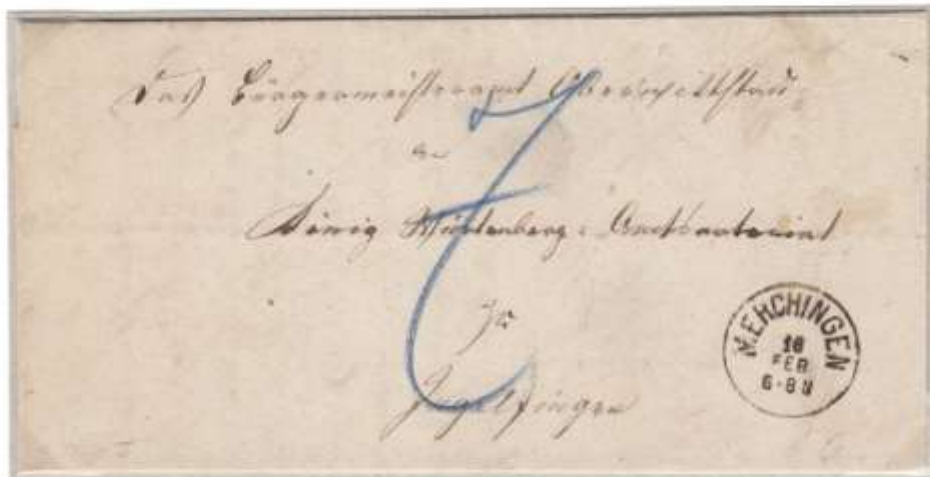 Das Bürgermeisteramt Oberwittstadt
an
König Würtenberg. Amtsnotariat
zu
Ingelfingen
MERCHINGEN
16
FEB
6-8N